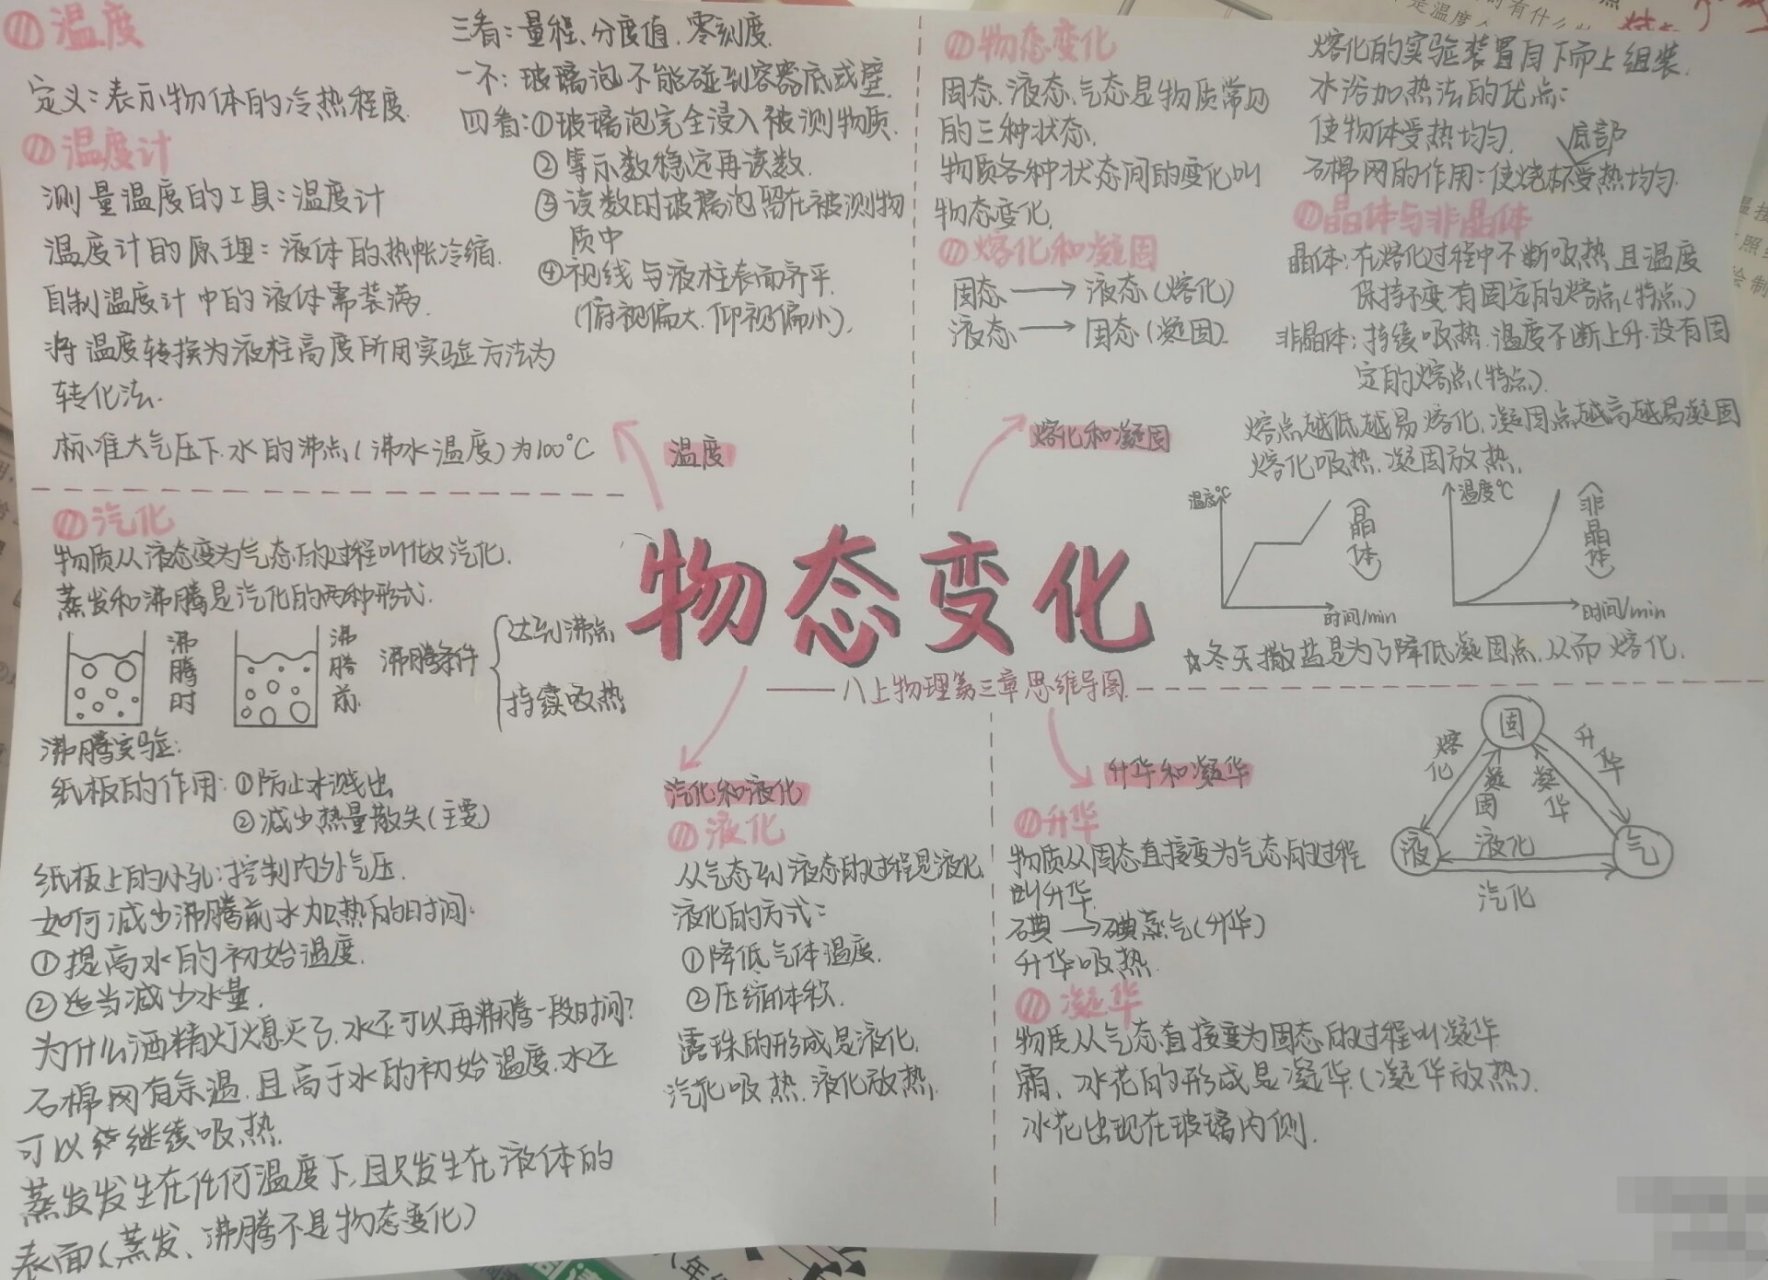 温度
定义:表示物体的冷热程度.
温度计
测量温度的工具:温度计
温度计的原理:液体的热帐冷缩.
自制温度计中的液体需装满.
将温度转换为液柱高度所用实验方法为
转化法.
标准大气压下.水的沸点(沸水温度)为100°C
三看:量程、分度值.零刻度.
一不:玻璃泡不能碰到容器底或壁.
四看:①玻璃泡完全浸入被测物质.
②等示数稳定再读数.
③读数时玻璃泡留在被测物
质中
④视线与液柱表面齐平.
(俯视偏大.仰视偏小).
温度
物态变化
固态、液态、气态是物质常见
的三种状态.
物质各种状态间的变化叫
物态变化.
熔化和凝固
固态→液态(熔化)
液态→固态(凝固).
熔化和凝固
熔化的实验装置自下而上组装.
水浴加热法的优点:
使物体受热均匀.
底部
石棉网的作用:使烧杯受热均匀.
晶体与非晶体
晶体:在熔化过程中不断吸热且温度
保持不变有固定的熔点(特点)
非晶体:持续吸热.温度不断上升.没有固
定的熔点(特点).
熔点越低越易熔化.凝固点越高越易凝固
熔化吸热.凝固放热.
温度°C
时间/min
(晶体)
温度°C
时间/min
(非晶体)
☆冬天撒盐是为了降低凝固点.从而熔化.
物态变化
——八上物理第三章思维导图.
汽化
物质从液态变为气态的过程叫做汽化.
蒸发和沸腾是汽化的两种形式.
沸腾时
沸腾前
沸腾条件
达到沸点
持续吸热
沸腾实验:
纸板的作用:①防止水溅出
②减少热量散失(主要)
纸板上的小孔:控制内外气压.
如何减少沸腾前水加热的时间:
①提高水的初始温度.
②适当减少水量.
为什么酒精灯熄灭了.水还可以再沸腾一段时间?
石棉网有余温.且高于水的初始温度.水还
可以继续吸热.
蒸发发生在任何温度下.且只发生在液体的
表面(蒸发、沸腾不是物态变化)
汽化和液化
液化
从气态到液态的过程是液化
液化的方式:
①降低气体温度.
②压缩体积.
露珠的形成是液化.
汽化吸热.液化放热.
升华和凝华
升华
物质从固态直接变为气态的过程
叫升华.
碘→碘蒸气(升华)
升华吸热.
凝华
物质从气态直接变为固态的过程叫凝华
霜、冰花的形成是凝华.(凝华放热).
冰花出现在玻璃内侧.
固
熔化
凝固
凝华
升华
液
液化
气
汽化